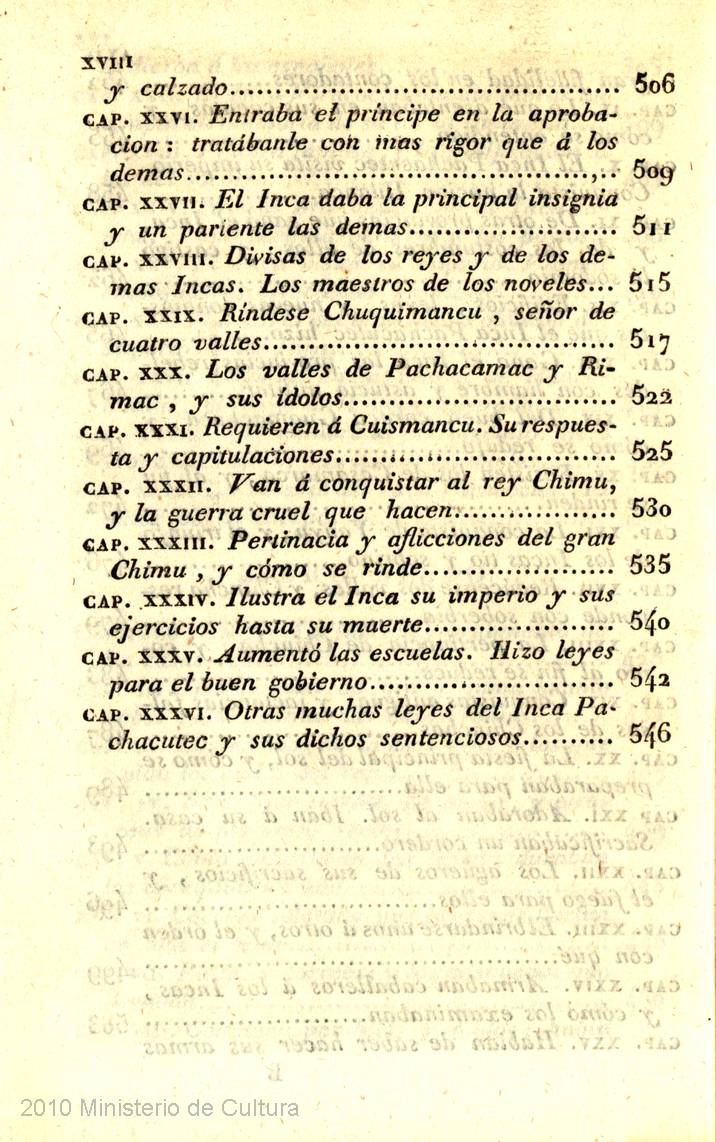 XVIII
y calzado........................................ 506
CAP. XXVI. Entraba el príncipe en la aproba-
cion : tratábanle con mas rigor que á los
demas.........................................,.. 509
CAP. XXVII. El Inca daba la principal insignia
y un pariente las demas...................... 511
CAP. XXVIII. Divisas de los reyes y de los de-
mas Incas. Los maestros de los noveles... 515
CAP. XXIX. Ríndese Chuquimancu , señor de
cuatro valles..................................... 517
CAP. XXX. Los valles de Pachacamac y Ri-
mac , y sus ídolos............................. 522
CAP. XXXI. Requieren á Cuismancu. Su respues-
ta y capitulaciones.............................. 525
CAP. XXXII. Van á conquistar al rey Chimu,
y la guerra cruel que hacen................. 530
CAP. XXXIII. Pertinacia y aflicciones del gran
Chimu , y cómo se rinde.................... 535
CAP. XXXIV. Ilustra el Inca su imperio y sus
ejercicios hasta su muerte.................... 540
CAP. XXXV. Aumentó las escuelas. Hizo leyes
para el buen gobierno.......................... 542
CAP. XXXVI. Otras muchas leyes del Inca Pa-
chacutec y sus dichos sentenciosos.......... 546
2010 Ministerio de Cultura